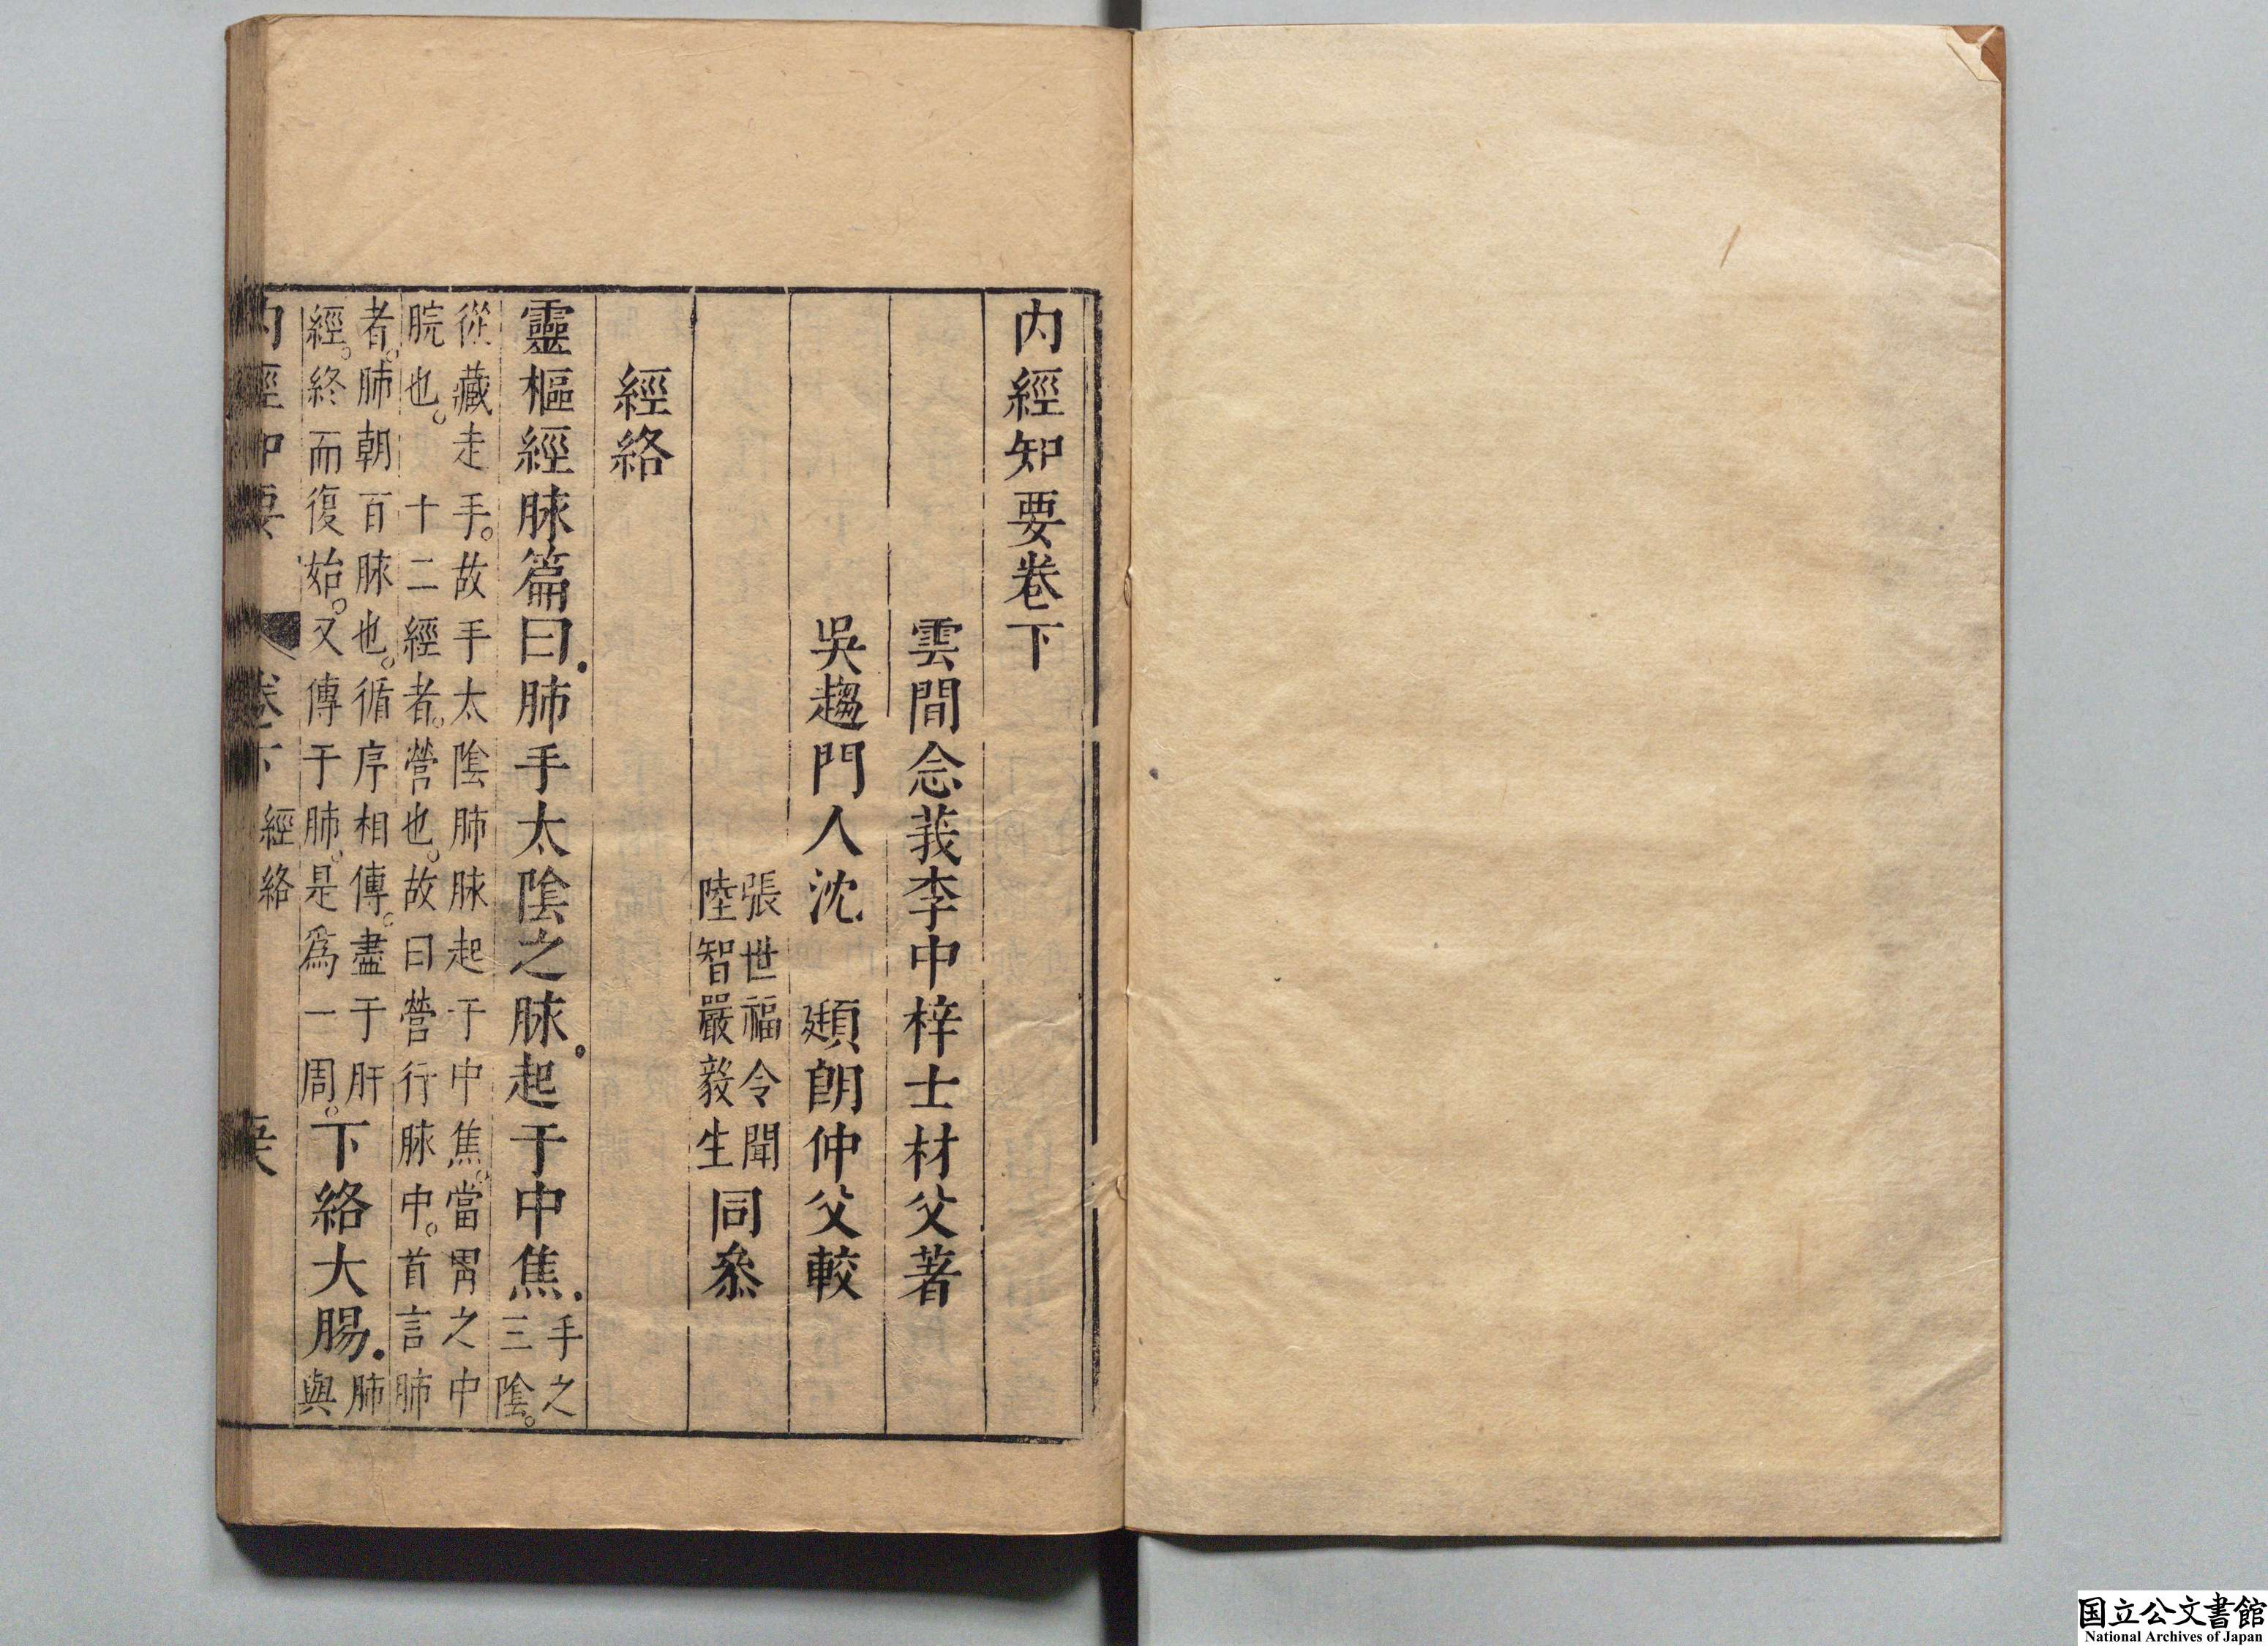 内經知要卷下
雲間念莪李中梓士材父著
吳趨門人沈 頲朗仲父較
張世福令聞
陸智嚴毅生
同叅
經絡
靈樞經脉篇曰肺手太陰之脉起于中焦
手之
三陰
從藏走手故手太陰肺脉起于中焦當胃之中
脘也 十二經者營也故曰營行脉中首言肺
者肺朝百脉也循序相傳盡于肝
經終而復始又傳于肺是爲一周
下絡大腸
肺
與
內經知要 卷下 經絡
国立公文書館
National Archives of Japan